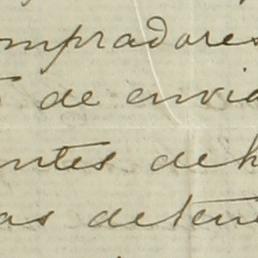 ompradores
de envia
ntes deh
as deten